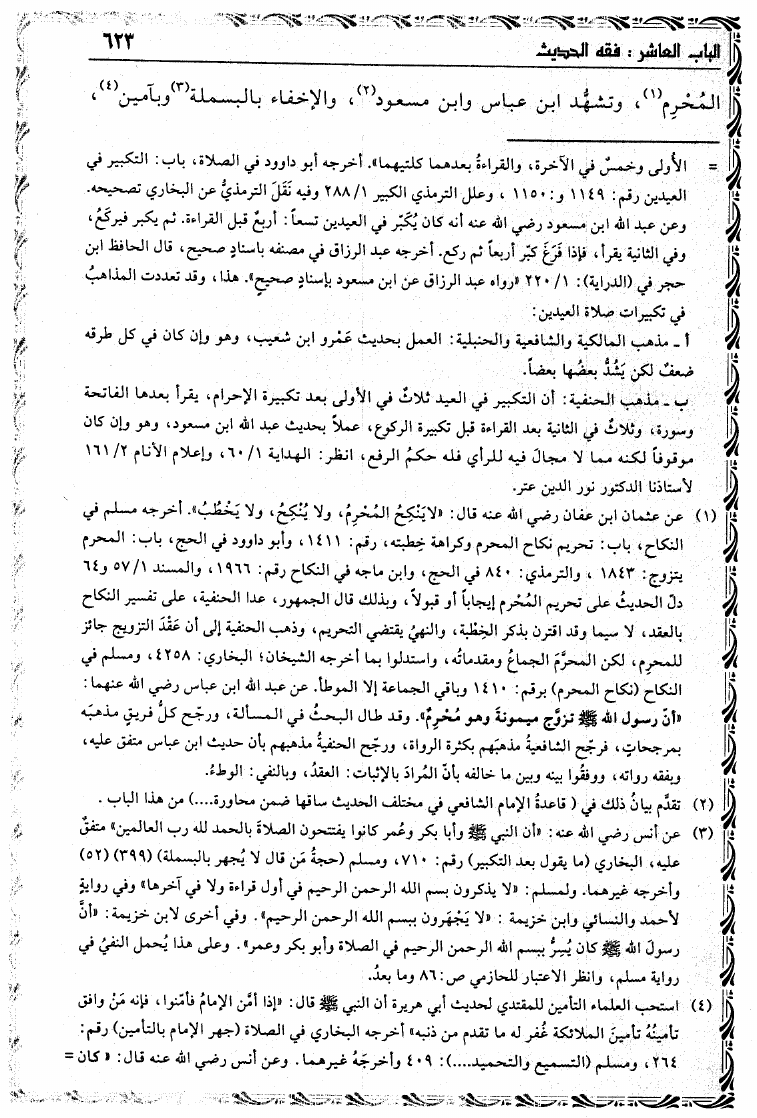 الباب العاشر : فقه الحديث
٦٢٣
المُحْرِم(١)، وتشهُّد ابن عباس وابن مسعود(٢)، والإخفاء بالبسملة(٣)وبآمين(٤)،
= الأولى وخمسٌ في الآخرة، والقراءةُ بعدهما كلتيهما». أخرجه أبو داوود في الصلاة، باب: التكبير في
العيدين رقم: ١١٤٩ و: ١١٥٠ ، وعلل الترمذي الكبير ٢٨٨/١ وفيه نَقَلَ الترمذيُّ عن البخاري تصحيحه.
وعن عبد الله ابن مسعود رضي الله عنه أنه كان يُكَبّر في العيدين تسعاً: أربعٌ قبل القراءة. ثم يكبر فيركَعُ،
وفي الثانية يقرأ، فإذا فَرَغَ كبّر أربعاً ثم ركع. أخرجه عبد الرزاق في مصنفه بإسنادٍ صحيح، قال الحافظ ابن
حجر في (الدراية): ٢٢٠/١ «رواه عبد الرزاق عن ابن مسعود بإسنادٍ صحيحٍ». هذا، وقد تعددت المذاهبُ
في تكبيرات صلاة العيدين:
أ ـ مذهب المالكية والشافعية والحنبلية: العمل بحديث عَمْرو ابن شعيب، وهو وإن كان في كل طرقه
ضعفٌ لكن يَشُدُّ بعضُها بعضاً.
ب ـ مذهب الحنفية: أن التكبير في العيد ثلاثٌ في الأولى بعد تكبيرة الإحرام، يقرأ بعدها الفاتحة
وسورة، وثلاثٌ في الثانية بعد القراءة قبل تكبيرة الركوع، عملاً بحديث عبد الله ابن مسعود، وهو وإن كان
موقوفاً لكنه مما لا مجالَ فيه للرأي فله حكمُ الرفع، انظر: الهداية ٦٠/١، وإعلام الأنام ١٦١/٢
لأستاذنا الدكتور نور الدين عتر.
(١) عن عثمان ابن عفان رضي الله عنه قال: «لايَنْكِحُ المُحْرِمُ، ولا يُنْكِحُ، ولا يَخْطُبُ». أخرجه مسلم في
النكاح، باب: تحريم نكاح المحرم وكراهة خِطبته، رقم: ١٤١١، وأبو داوود في الحج، باب: المحرم
يتزوج: ١٨٤٣ ، والترمذي: ٨٤٠ في الحج، وابن ماجه في النكاح رقم: ١٩٦٦، والمسند ٥٧/١ و٦٤
دلّ الحديثُ على تحريم المُحْرِم إيجاباً أو قبولاً، وبذلك قال الجمهور، عدا الحنفية، على تفسير النكاح
بالعقد، لا سيما وقد اقترن بذكر الخِطْبة، والنهيُ يقتضي التحريم، وذهب الحنفية إلى أن عَقْدَ التزويج جائز
للمحرِم، لكن المحرَّمَ الجماعُ ومقدماتُه، واستدلوا بما أخرجه الشيخان؛ البخاري: ٤٢٥٨، ومسلم في
النكاح (نكاح المحرم) برقم: ١٤١٠ وباقي الجماعة إلا الموطأ. عن عبد الله ابن عباس رضي الله عنهما:
«أنّ رسول الله ﷺ تزوَّج ميمونةَ وهو مُحْرِمٌ». وقد طال البحثُ في المسألة، ورجّح كلُّ فريقٍ مذهبَه
بمرجحاتٍ، فرجّح الشافعيةُ مذهبَهم بكثرة الرواة، ورجّح الحنفيةُ مذهبهم بأن حديث ابن عباس متفق عليه،
وبفقه رواته، ووفقُوا بينه وبين ما خالفه بأنّ المُرادَ بالإثبات: العقدُ، وبالنفي: الوطءُ.
(٢) تقدَّم بيانُ ذلك في ( قاعدةُ الإمام الشافعي في مختلف الحديث ساقها ضمن محاورة....) من هذا الباب .
(٣) عن أنس رضي الله عنه: «أن النبي ﷺ وأبا بكر وعُمر كانوا يفتتحون الصلاةَ بالحمد لله رب العالمين» متفقٌ
عليه، البخاري (ما يقول بعد التكبير) رقم: ٧١٠، ومسلم (حجةُ مَن قال لا يُجهر بالبسملة) (٣٩٩) (٥٢)
وأخرجه غيرهما. ولمسلم: «لا يذكرون بسم الله الرحمن الرحيم في أول قراءة ولا في آخرها» وفي روايةٍ
لأحمد والنسائي وابن خزيمة : «لا يَجْهَرون ببسم الله الرحمن الرحيم». وفي أخرى لابن خزيمة: «أنَّ
رسولَ الله ﷺ كان يُسِرُّ ببسم الله الرحمن الرحيم في الصلاة وأبو بكر وعمر». وعلى هذا يُحمل النفيُ في
رواية مسلم، وانظر الاعتبار للحازمي ص: ٨٦ وما بعدُ.
(٤) استحب العلماء التأمين للمقتدي لحديث أبي هريرة أن النبي ﷺ قال: «إذا أمَّن الإمامُ فأمّنوا، فإنه مَنْ وافق
تأمينُهُ تأمينَ الملائكة غُفر له ما تقدم من ذنبه» أخرجه البخاري في الصلاة (جهر الإمام بالتأمين) رقم:
٢٦٤ ، ومسلم (التسميع والتحميد....): ٤٠٩ وأخرجَهُ غيرهما. وعن أنس رضي الله عنه قال: « كان =